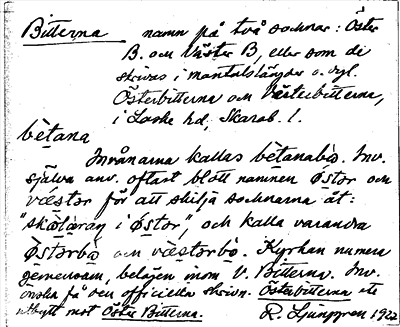 Bitterna namn på två socknar: Öster
B. och Väster B, eller som de
skrivas i mantalslängder o. dyl.
Österbitterna och Västerbitterna,
i Laske hd, Skarab. l.
bètana
Invånarna kallas bètanabo. Inv.
själva anv. oftast blott namnen østor och
væstor för att skilja socknarna åt:
"skøtaray i østor", och kalla varandra
østorbo och væstorbo. Kyrkan numera
gemensam, belägen inom V. Bitterna. Inv.
önska få den officiella skrivn. Österbitterna etc
utbytt mot Öster Bitterna. R. Ljunggren 1922